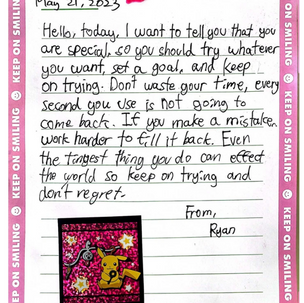 May 21, 2023
Hello, today, I want to tell you that you
are special, so you should try whatever
you want, set a goal, and keep
on trying. Don't waste your time, every
second you use is not going to
come back. If you make a mistake,
work harder to fill it back. Even
the tinyest thing you do can effect
the world so keep on trying and
don't regret.
From,
Ryan
KEEP ON SMILING
KEEP ON SMILING
KEEP ON SMILING
KEEP ON SMILING
KEEP ON SMILING
KEEP ON SMILING